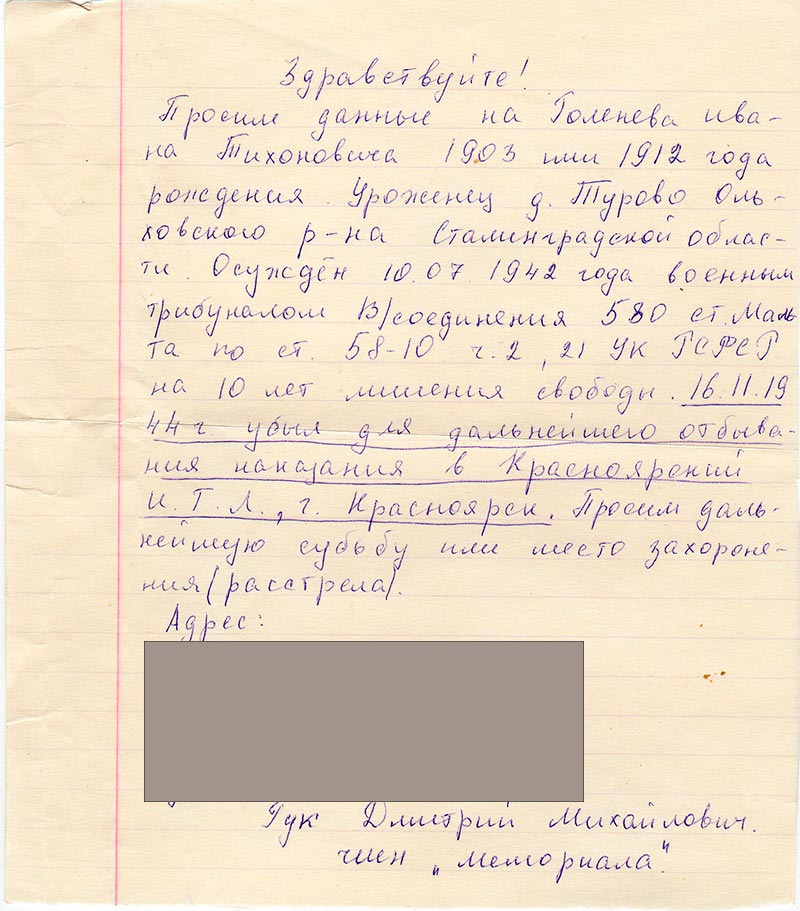 Здравствуйте!
Просим данные на Голенева Ива-
на Тихоновича 1903 или 1912 года
рождения. Уроженец д. Турово Оль-
ховского р-на Сталинградской облас-
ти. Осуждён 10.07.1942 года военным
трибуналом В/соединения 580 ст. Маль
та по ст. 58-10 ч. 2, 21 УК РСФСР
на 10 лет лишения свободы. 16.11.19
44 г. убыл для дальнейшего отбыва-
ния наказания в Красноярский
И.Т.Л., г. Красноярск. Просим даль-
нейшую судьбу или место захороне-
ния (расстрела).
Адрес:
Гук Дмитрий Михайлович.
член „Мемориала".